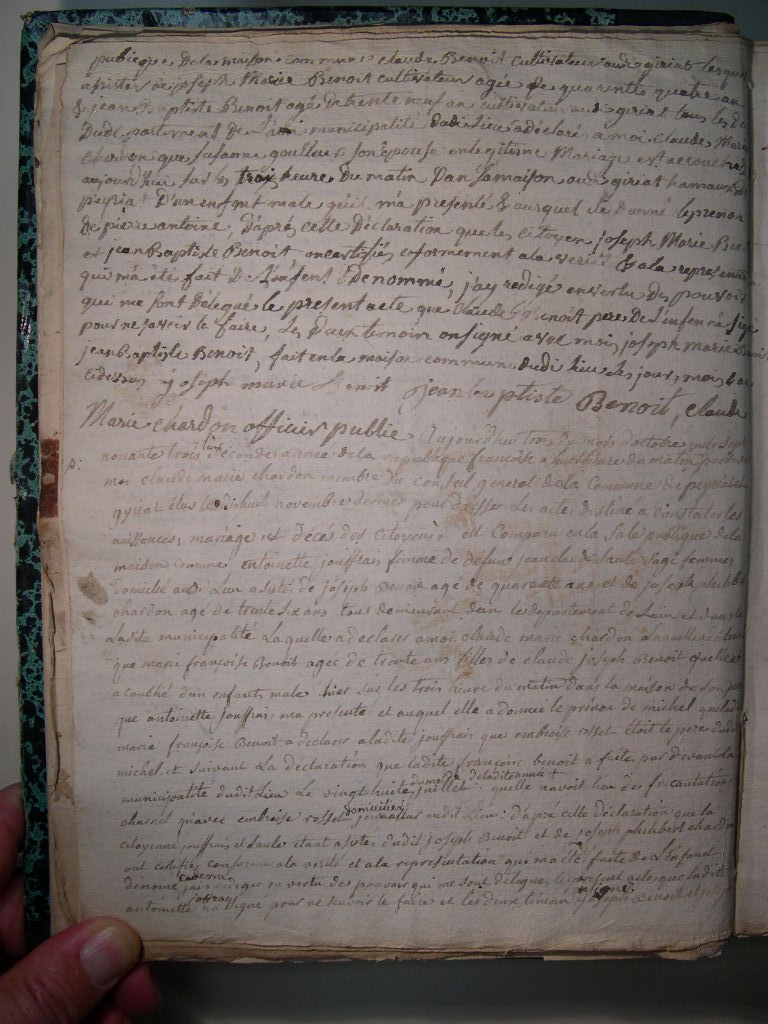 publique de la maison commune claude Benoit cultivateur audi giriat lequel
assisté de joseph Marie Benoit cultivateur agée de quarente quatre an
& jean Baptiste Benoit age de trente neuf an cultivateur audi giriat tous les deux
dudi partement de Lain municipalité dudi Lieu a déclaré a moi Claude Marie
chardon que Susanne goullur son Epouse en legitime Mariage est accouché
aujourd'hui sur les trois heure du matin Dan sa maison audi giriat hamaux de
peyriat D'un enfant male quil m'a presenté & auquel il a donné le prenom
de pierre antoine, D'aprés cette Déclaration que les citoyen joseph Marie Benoit
et jean Baptiste Benoit on certifiés conformement a la verité & a la representation
qui m'a été fait De L'enfent Denommé, j'ay redigé en vertu des pouvoir
qui me sont Delegué le present acte que Claude Benoit pere de L'enfen na signé
pour ne savoir le faire, Les deux temoin on signé avec moi, joseph marie Benoit
jean Baptiste Benoit, fait en la maison commune dudi lieu les jour, mois & an
cidessus joseph marie Benoit jean baptiste Benoit, claude
Marie chardon officier publie Aujourdhui trois du mois d'octobre mille sept
nonante trois lan seconde année de la republique françoise a huit heure du matin pardevant
moi claude marie chardon membre du consel general de la Commune de peyriat
gyriat élus le dishuit novembre dernié pour drisser les actes destiné a constater les
naissances, mariage et décés des citoyens est comparu en la sale publique de la
maison comune entoinette jouffrais femme de defun jean claude saule sage femmes
domicilié audi Lieu asisté de joseph Benoit agé de quarante ans et de joseph philibert
chardon agé de trente six ans tous demeurant dans le departement de Lain et dans la
Ladite municipalité Laquelle a declarer a moi claude marie chardon Laquelle a declaré
que marie françoise Benoit ageé de trante ans filles de claude joseph Benoit quelle
acouché d'un enfant male hier sur les trois heure du matin dans la maison de son pere
que antoinette jouffrais ma presenté et auquel elle a donnee le prénon de michel que ladite
marie françoise Benoit a declarer a ladite jouffrais que embroise rosset étoit le pere dudit
michel et suivant La déclaration que ladite françoise benoit a faite par devant la
municipalité dudit Lieu Le vingt huite juillet du mois de ladite année quelle navoit lieu des frecantations
charnel qu'avec embroise rosset domicilier journallier audit Lieu. D'apré cette déclaration que la
citoyenne jouffrais et saule étant asistée dudit joseph Benoit et de joseph philibert chardon
ont certifiés conforme a la verité et a la representation qui ma été faite de L'enfant
dénomé jais redigés en vertu des pouvoir qui me sont delegué, le present acte que ladite
antoinette joffrays na signé pour ne scavoir le faire et les deux temoin on signé joseph Benoit et jos.